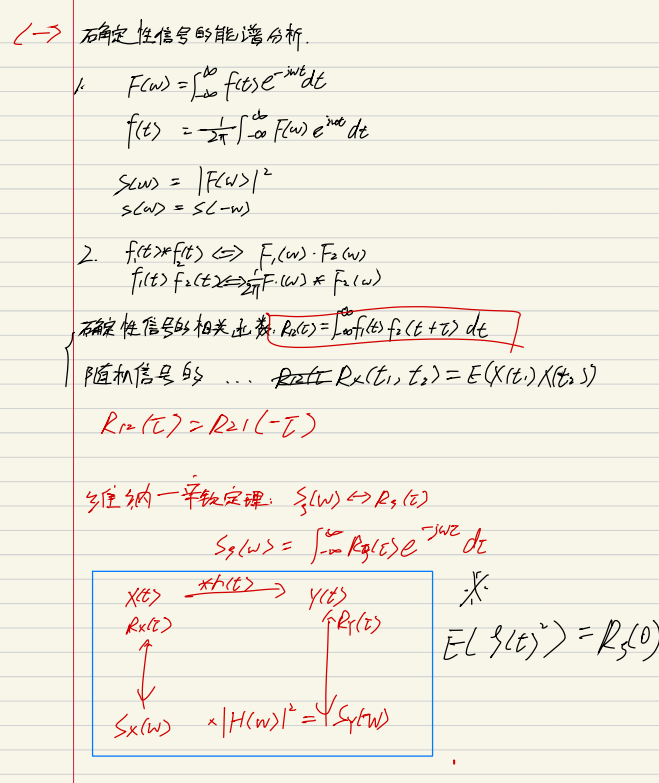 <一> 确定性信号的能谱分析.
1. F(w) = ∫_{-∞}^{∞} f(t) e^{-jwt} dt
f(t) = 1/2π ∫_{-∞}^{∞} F(w) e^{jwt} dt
S(w) = |F(w)|²
s(w) = s(-w)
2. f₁(t)*f₂(t) <=> F₁(w)·F₂(w)
f₁(t) f₂(t) <=> 1/2π F₁(w) * F₂(w)
确定性信号的相关函数: R₁₂(τ) = ∫_{-∞}^{∞} f₁(t) f₂(t+τ) dt
随机信号的 ... Rx(t₁, t₂) = E(X(t₁) X(t₂))
R₁₂(τ) = R₂₁(-τ)
维纳一辛钦定理: Sξ(w) ↔ Rξ(τ)
Sξ(w) = ∫_{-∞}^{∞} Rξ(τ) e^{-jwτ} dτ
X(t) *h(t) → Y(t)
Rx(τ) R_Y(τ)
Sx(w) ×|H(w)|² = S_Y(w)
※
E(ξ(t)²) = Rξ(0)